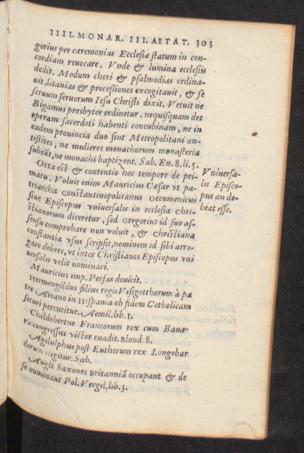 IIII. MONAR. III. AETAT. 303
gorius per caremonias Ecclesiæ statum in con-
cordiam reuocare, Vnde & lumina ecclesiis
dedit. Modum chori & psalmodias ordina-
uit, litanias & processiones excogitauit, & se
seruum seruorum Iesu Christi dixit. Vetuit ne
Bigamus presbyter ordinetur, nequisquam des
operam sacerdoti habenti concubinam, ne in
eadem prouincia duo sint Metropolitani an-
tistites, ne mulieres monachorum monasteria
subeãt, ne monachi baptizent. Sab. En. 8. li. 5.
Orta est & contentio hoc tempore de pri-
matu. Voluit enim Mauricius Cæsar vt pa-
triarcha constantinopolitanus oecumenicus
siue Episcopus vniuersalis in ecclesia Chri-
stianorum diceretur, sed Gregorius id suo as-
sensu comprobare non voluit, & christiana
constantia vsus scripsit, neminem id sibi arro-
gare debere, vt inter Christianos Episcopus vni
uersalis velit nominari.
Vniuersa-
lis Episco-
pus an de-
beat esse.
Mauricius imp. Persas deuicit.
Hermenigildus filius regis Visigotthorum à pa
tre Ariano in Hispania ob fidem Catholicam
securi percutitur. Aemil. lib. 1.
Childebertus Francorum rex cum Baua-
ra congressus victor euadit. Blond. 8.
Agilulphus post Eutherum rex Longobar
dorum eligitur. Sab.
Angli Saxones Britanniã occupant & de
se nominant Pol. Vergil. lib. 3.